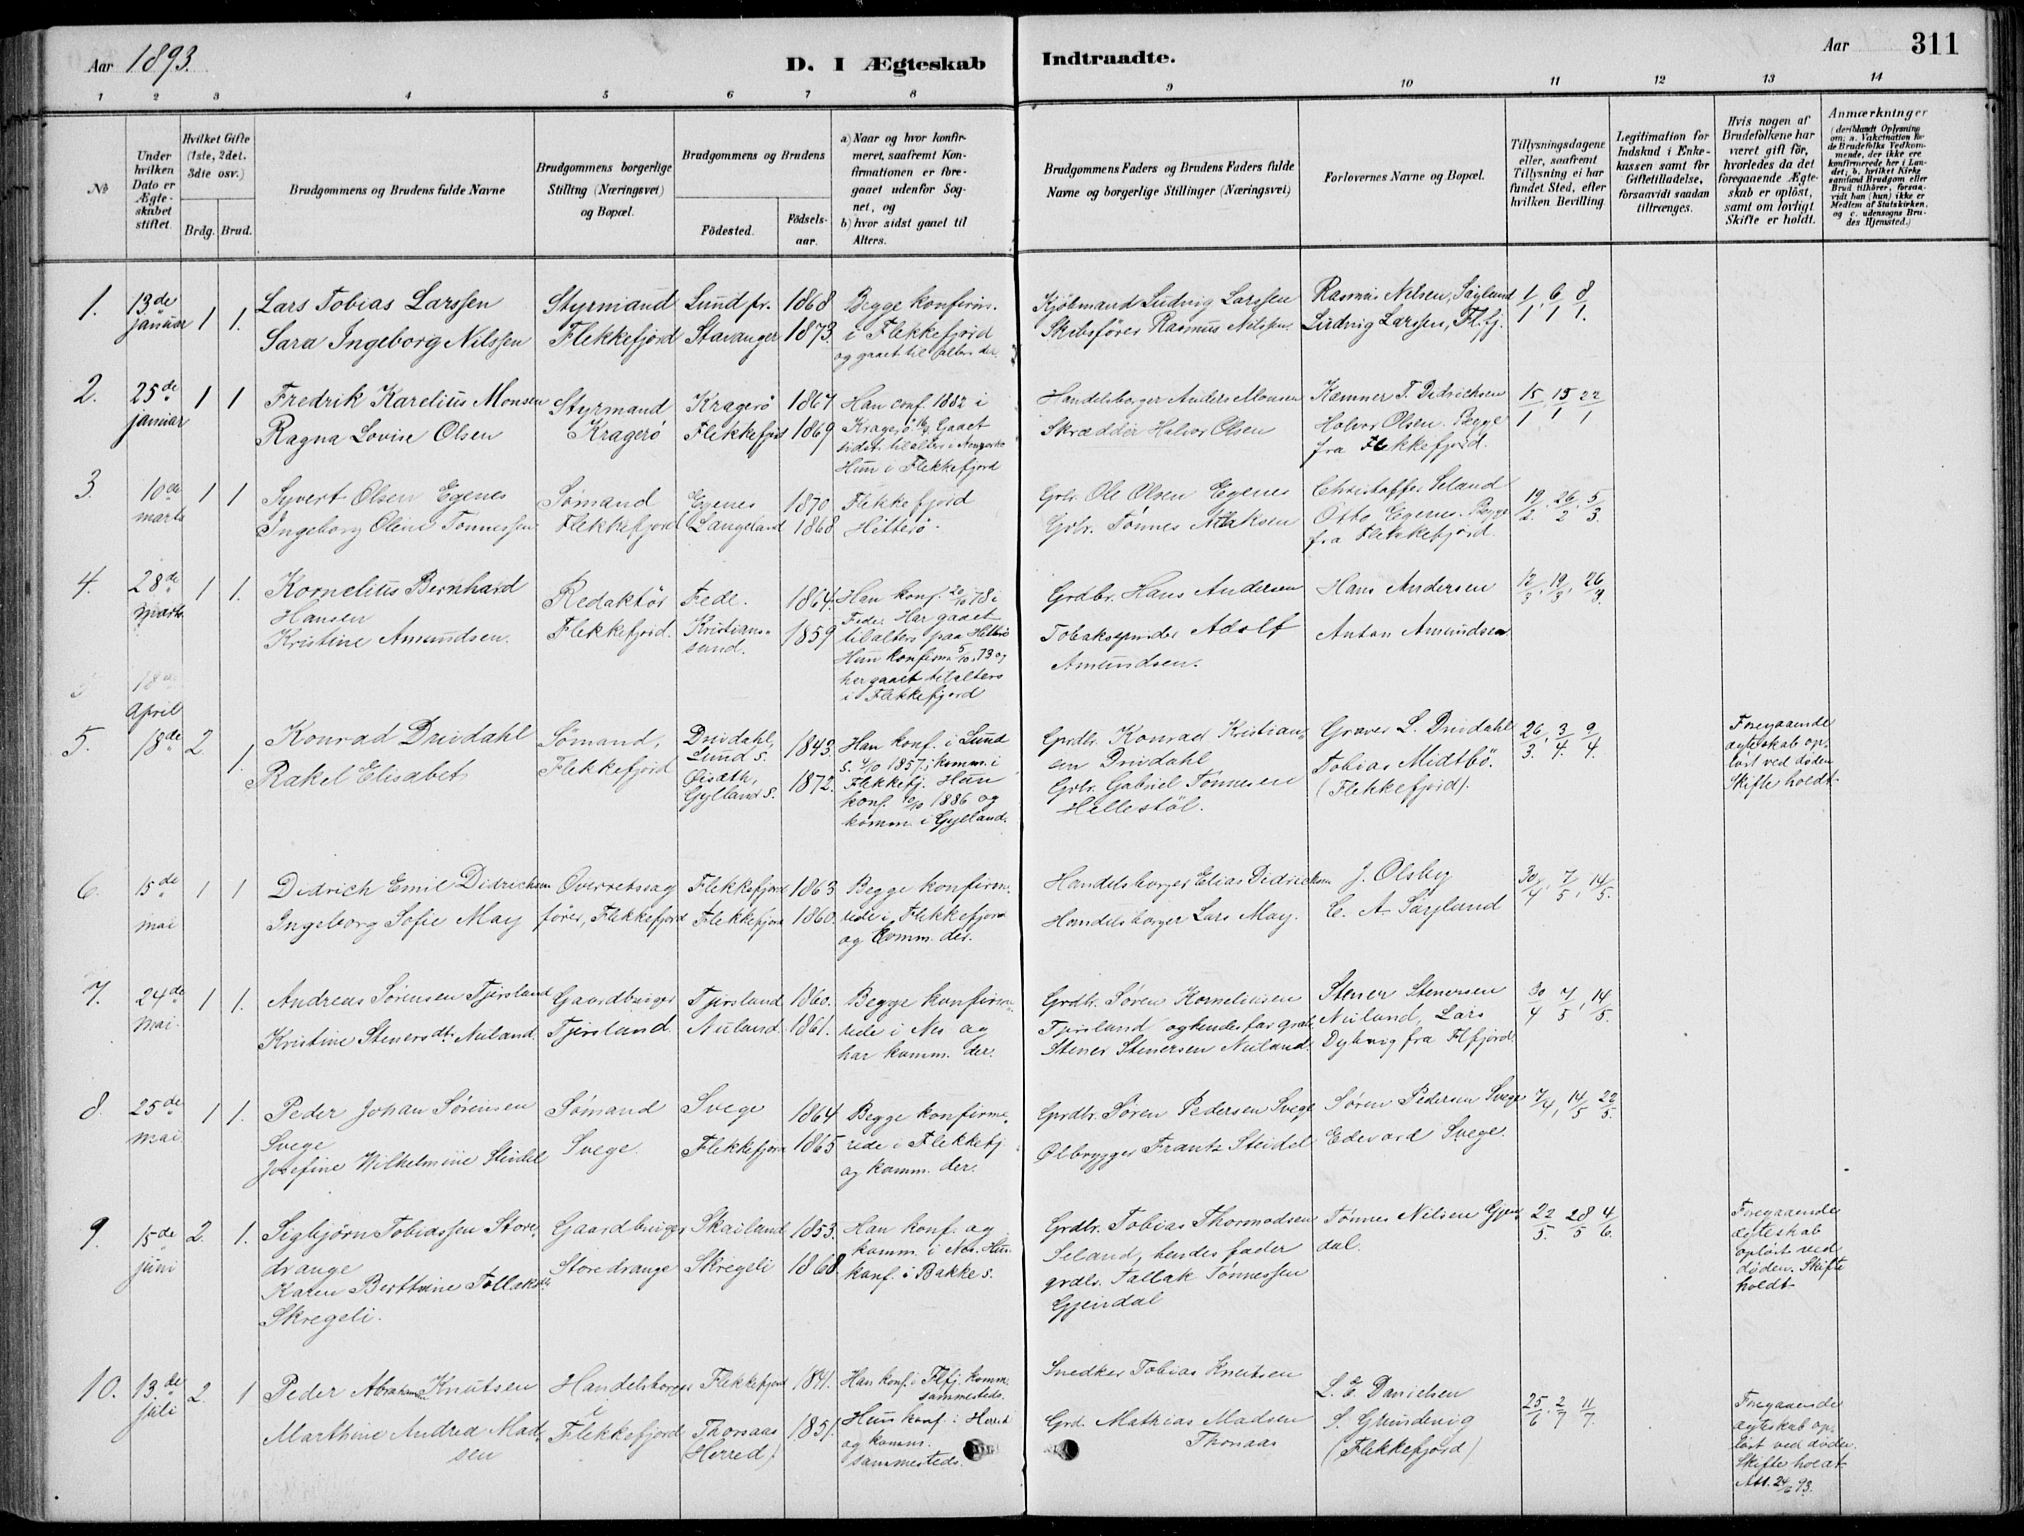 Aar 1893. D. I Ægteskab Indtraadte. Aar 311
1 2 3 4 5 6 7 8 9 10 11 12 13 14
№
Under hvilken Dato er Ægteskabet stiftet.
Hvilket Gifte (1ste, 2det, 3die osv.)
Brdg. Brud.
Brudgommens og Brudens fulde Navne
Brudgommens borgerlige Stilling (Næringsvei) og Bopæl.
Brudgommens og Brudens
Födested. Födsels-aar.
a) Naar og hvor konfirmeret, saafremt Konfirmationen er foregaaet udenfor Sognet, og
b) hvor sidst gaaet til Alters.
Brudgommens Faders og Brudens Faders fulde Navne og borgerlige Stillinger (Næringsvei)
Forlovernes Navne og Bopæl.
Tillysningsdagene eller, saafremt Tillysning ei har fundet Sted, efter hvilken Bevilling.
Legitimation for Indskud i Enkekassen samt for Giftetilladelse, forsaavidt saadan tiltrænges.
Hvis nogen af Brudefolkene har været gift før, hvorledes da det foregaaende Ægteskab er opløst, samt om lovligt Skifte er holdt.
Anmærkninger (deriblandt Oplysning om: a. Vakcination for de Brudefolks Vedkommende, der ikke ere konfirmerede her i Landet; b. hvilket Kirkesamfund Brudgom eller Brud tilhører, forsaavidt han (hun) ikke er Medlem af Statskirken, og c. udensogns Brudes Hjemsted.)
1. 13de januar 1 1.
Lars Tobias Larssen
Sara Ingeborg Nilssen
Styrmand Flekkefjord
Lund pr. 1868
Stavanger 1873.
Begge konfirm. i Flekkefjord og gaaet til alters der.
Kjöbmand Ludvig Larssen
Skibsfører Rasmus Nilssen.
Rasmus Nilsen, Søyland
Ludvig Larssen, Fl.fj.
1/1, 6/1, 8/1.
2. 25de januar 1 1
Fredrik Karelius Monsen
Ragna Lovise Olsen
Styrmand Kragerö
Kragerö 1867
Flekkefjord 1869
Han conf. 1882 i Kragerö Gaaet sidst til alters i
Hun i Flekkefjord
Handelsborger Anders Monsen
Skrædder Halvor Olsen
Kæmner T. Didrichsen
Halvor Olsen. Begge fra Flekkefjord.
15/1, 15/1 22/1
3. 10de marts 1 1
Syvert Olsen Egenes
Ingeborg Oline Tønnessen
Sømand Flekkefjord
Egenes 1870
(Langeland 1868
Flekkefjord
Hitterø.
Grbr. Ole Olsen Egenes
Grbr. Tønnes
Christoffer Seland
Otto Egenes. Begge fra Flekkefjord.
19/2. 26/2. 5/3.
4. 28de marts 1 1.
Kornelius Bernhard Hansen
Kristine Amundsen.
Redaktør Flekkefjord.
Fede. 1864.
Kristianssund. 1859
Han konf. 20/10 78 i Fede. Har gaaet til alters paa Hitterø
Hun konfirm 5/10 73 og har gaaet til alters i Flekkefjord
Grdbr. Hans Andersen
Tobakspinder Adolf Amundsen.
Hans Andersen
Anton Amundsen
12/3, 19/3, 26/3.
5 18de April
5. 18de 2. 1.
Konrad Dridahl
Rakel Elisabet
Sømand, Flekkefjord
Dridahl, Lund s. 1843.
Gylland s. 1872.
Han konf. i Lund s. 1857, komm. i Flekkefj. Hun konf. 1886 og komm. i Gylland.
Grdbr. Konrad Kristiansen Dridahl
Grbr. Gabriel Tönnesen Hellestöl.
Graver L. Dridahl
Tobias Midtbö. (Flekkefjord).
26/3. 3/4. 9/4.
Foregaaende ægteskab opløst ved døden Skifte holdt
6. 15de mai 1 1
Didrich Emil Didrichsen
Ingeborg Sofie May
Overretssagfører, Flekkefjord
Flekkefjord 1863
Flekkefjord 1860.
Begge konfirmerede i Flekkefjord og komm. der.
Handelsborger Elias Didricksen
Handelsborger Lars May.
J. Olsby
C. A. Søyland
30/4, 7/5, 14/5.
7. 24de mai. 1 1.
Andreas Sørensen Tjersland
Kristine Stenersdt. Nuland.
Gaardbruger Tjersland.
Tjersland 1860.
Nuland. 1861.
Begge konfirmerede i Nes og har komm. der.
Grdbr. Søren Korneliusen Tjersland og hendes far grdb. Stener Stenersen Nuland.
Stener Stenersen Nuland, Lars Dybvig fra Flfjord.
30/4 7/5, 14/5.
8. 25de mai. 1 1.
Peder Johan Sørensen Svege
Josefine Wilhelmine Steidel
Sømand Svege.
Svege 1864
Flekkefjord 1865
Begge konfirmerede i Flekkefj. og komm. der.
Grdbr. Søren Pedersen Svege
Ølbrygger Frantz Steidel
Søren Pedersen Svege
Edevard Svege.
7/4, 14/5 22/5.
9. 15de juni 2 1.
Sigbjörn Tobiassen Storedrange
Karen Berthine Tollaksdt. Skregeli.
Gaardbruger Storedrange
Skailand 1853.
Skregeli 1868.
Han konf. og komm. i Nes. Hun konf. i Bakke s.
Grdbr. Tobias Thormodsen Seland, hendes fader grdbr. Tallak Tønnessen Gjeindal
Tönnes Nilsen Gjeindal.
22/5. 28/5 4/6.
Foregaaende ægteskab opløst ved døden. Skifte holdt
10. 13.de juli 2. 1
Peder Abraham Knutsen
Marthine Andrea Madsen
Handelsborger Flekkefjord
Flekkefjord 1841.
Thorsaas (Herred). 1851.
Han konf. i Flfj. komm. sammesteds.
Hun konf. i Herred og komm. sammesteds.
Snedker Tobias Knutsen
Grd. Mathias Madsen Thorsaas
L. E. Danielsen
S. Grundevig (Flekkefjord)
25/6. 2/7 11/7.
Foregaaende ægteskab opløst ved døden. Skifte holdt Att. 24/6 93.